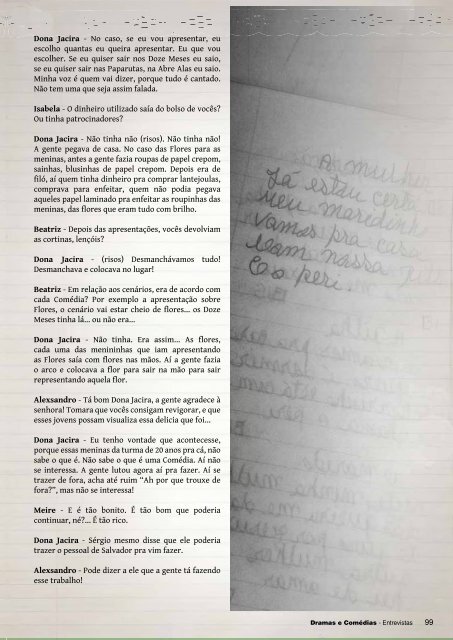 Dona Jacira - No caso, se eu vou apresentar, eu
escolho quantas eu queira apresentar. Eu que vou
escolher. Se eu quiser sair nos Doze Meses eu saio,
se eu quiser sair nas Paparutas, na Abre Alas eu saio.
Minha voz é quem vai dizer, porque tudo é cantado.
Não tem uma que seja assim falada.
Isabela - O dinheiro utilizado saía do bolso de vocês?
Ou tinha patrocinadores?
Dona Jacira - Não tinha não (risos). Não tinha não!
A gente pegava de casa. No caso das Flores para as
meninas, antes a gente fazia roupas de papel crepom,
sainhas, blusinhas de papel crepom. Depois era de
filó, aí quem tinha dinheiro pra comprar lantejoulas,
comprava para enfeitar, quem não podia pegava
aqueles papel laminado pra enfeitar as roupinhas das
meninas, das flores que eram tudo com brilho.
Beatriz - Depois das apresentações, vocês devolviam
as cortinas, lençóis?
Dona Jacira - (risos) Desmanchávamos tudo!
Desmanchava e colocava no lugar!
Beatriz - Em relação aos cenários, era de acordo com
cada Comédia? Por exemplo a apresentação sobre
Flores, o cenário vai estar cheio de flores... os Doze
Meses tinha lá... ou não era...
Dona Jacira - Não tinha. Era assim... As flores,
cada uma das menininhas que iam apresentando
as Flores saía com flores nas mãos. Aí a gente fazia
o arco e colocava a flor para sair na mão para sair
representando aquela flor.
Alexsandro - Tá bom Dona Jacira, a gente agradece à
senhora! Tomara que vocês consigam revigorar, e que
esses jovens possam visualiza essa delicia que foi...
Dona Jacira - Eu tenho vontade que acontecesse,
porque essas meninas da turma de 20 anos pra cá, não
sabe o que é. Não sabe o que é uma Comédia. Aí não
se interessa. A gente lutou agora aí pra fazer. Aí se
trazer de fora, acha até ruim “Ah por que trouxe de
fora?”, mas não se interessa!
Meire - E é tão bonito. É tão bom que poderia
continuar, né?... É tão rico.
Dona Jacira - Sérgio mesmo disse que ele poderia
trazer o pessoal de Salvador pra vim fazer.
Alexsandro - Pode dizer a ele que a gente tá fazendo
esse trabalho!
Já estou certa
meu maridinh
vamos pra casa
nossa
Dramas e Comédias - Entrevistas 99